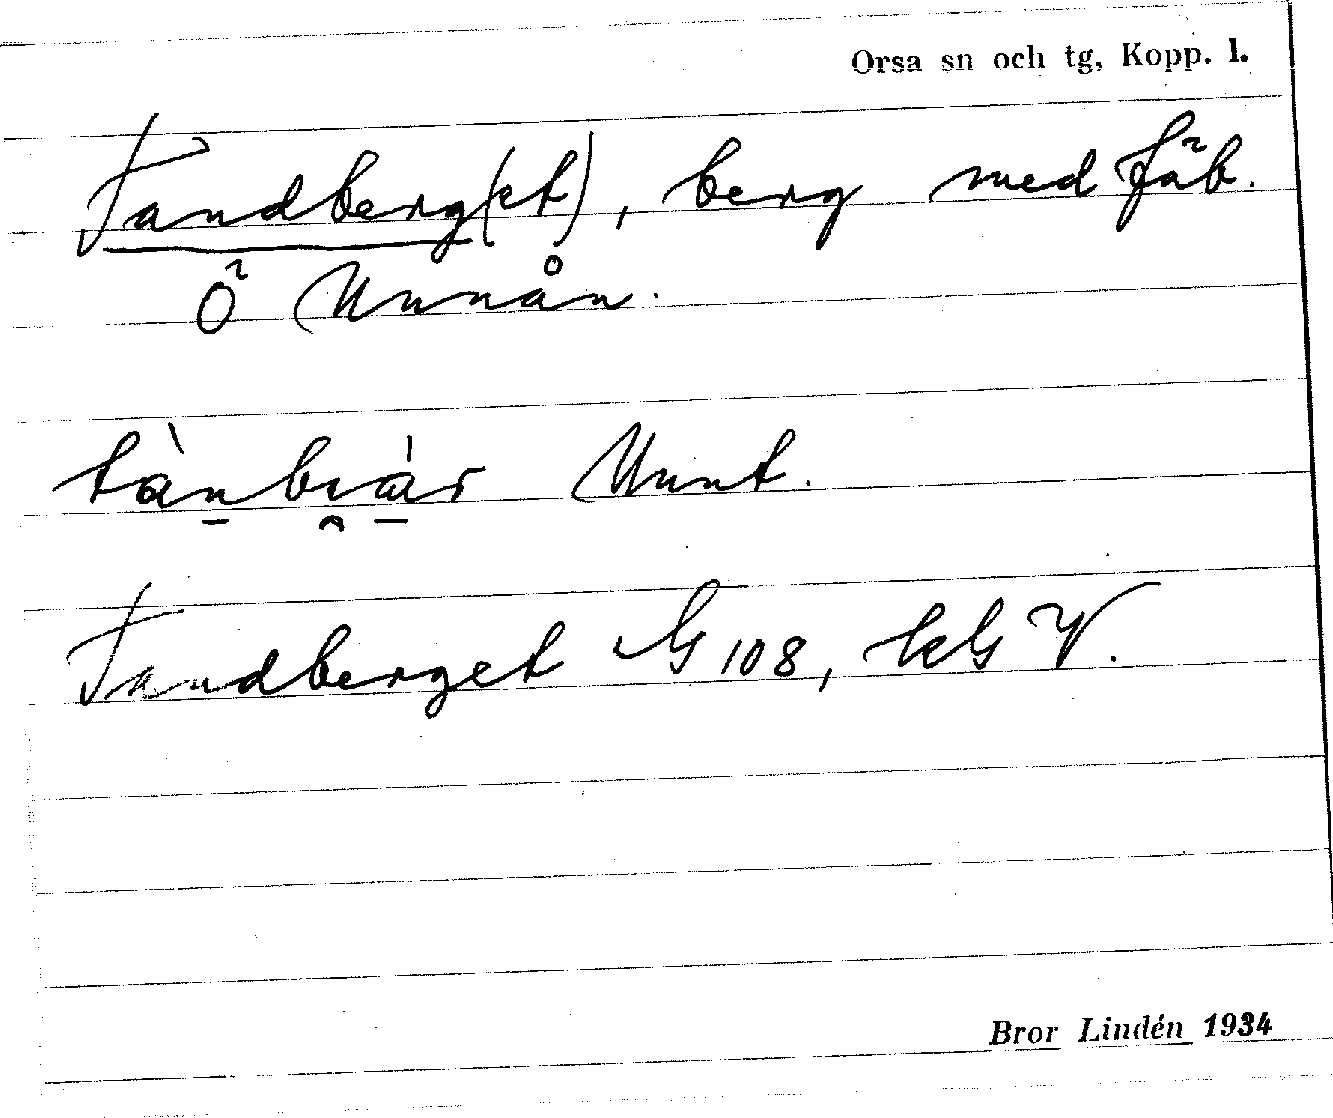 Orsa sn och tg, Kopp. l.
Tandberg(et), berg med fäb.
Ö Unnån.
tànbi̯ár Unnt.
Tandberget G 108, kG V.
Bror Lindén 1934